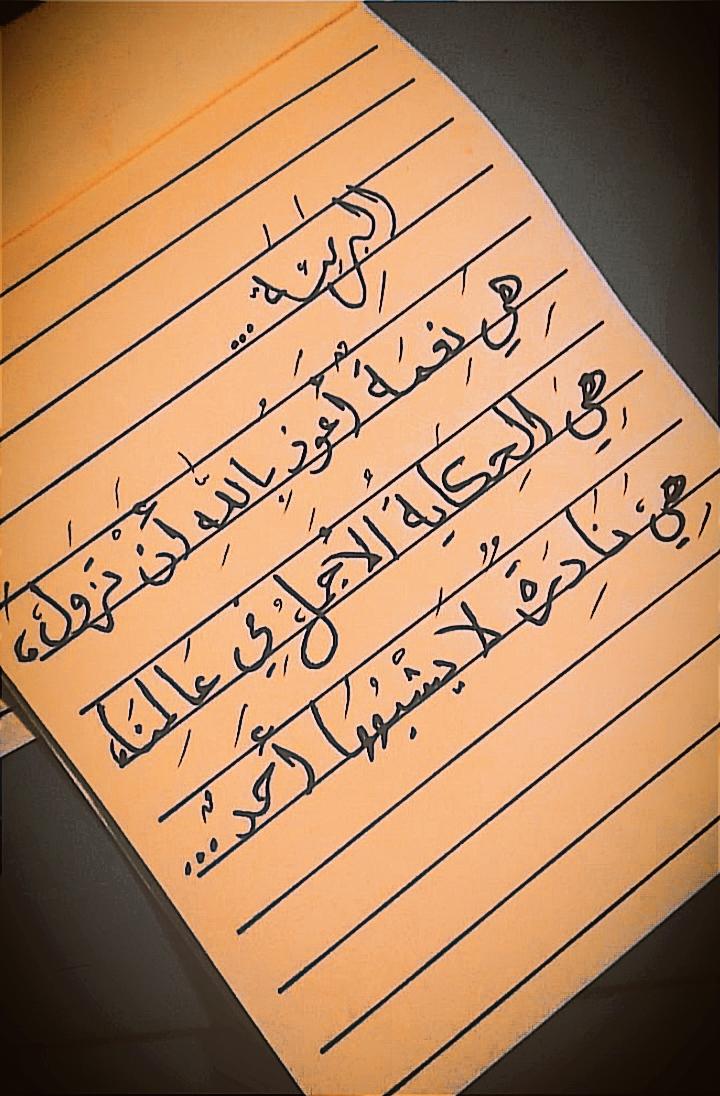 البريئة...
هِي نعمَة أَعُوذ بِاللَّه أَن تَزْول،
هِي الحِكايَة الأجمَلُ فِي عَالمنَا،
هِيَ نَادرَةٌ لا يشْبِهُهَا أَحَدٌ...